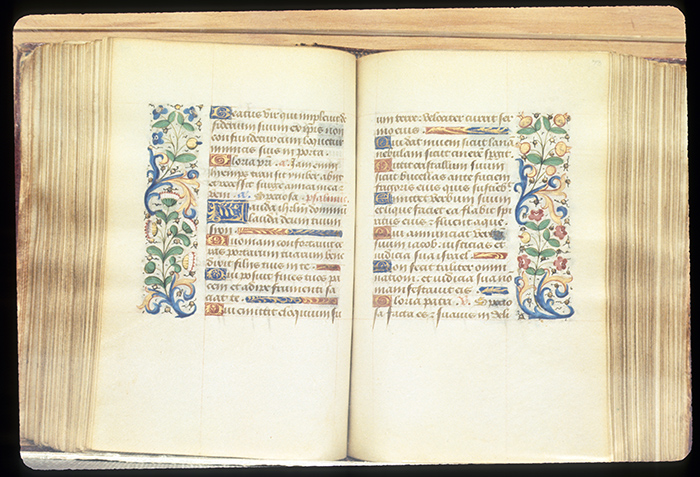 Beatus vir qui implevit de
siderium suum ex ipsis non
confundetur cum loquetur
inimicis suis in porta.
Gloria pri. a. Iam enim
hyemps transiit ymber abijt
et recessit surge amica mea et
veni. a. Speciosa psalmus
Lauda iherlm dominu
lauda deum tuum
sion
Quoniam confortavit se
ras portarum tuarum bene
dixit filiis tuis in te
Qui posuit fines tuos pa
cem et adipe frumenti sa
tiat te
Qui emittit eloquium su
um terre: velociter currit ser
mo eius
Qui dat nivem sicut lana
nebulam sicut cinere spgit
Mittit cristallum suum
sicut buccellas ante faciem
frigoris eius quis sustineb
Emittet verbum suum
et liquefaciet ea flabit spi
ritus eius: et fluent aque
Qui annunciat verbu
suum iacob: iusticias et
iudicia sua israel
Non fecit taliter omni
nationi: et iudicia sua no
manifestavit eis
Gloria patri. a. Specio
sa facta es: et suavis in deli